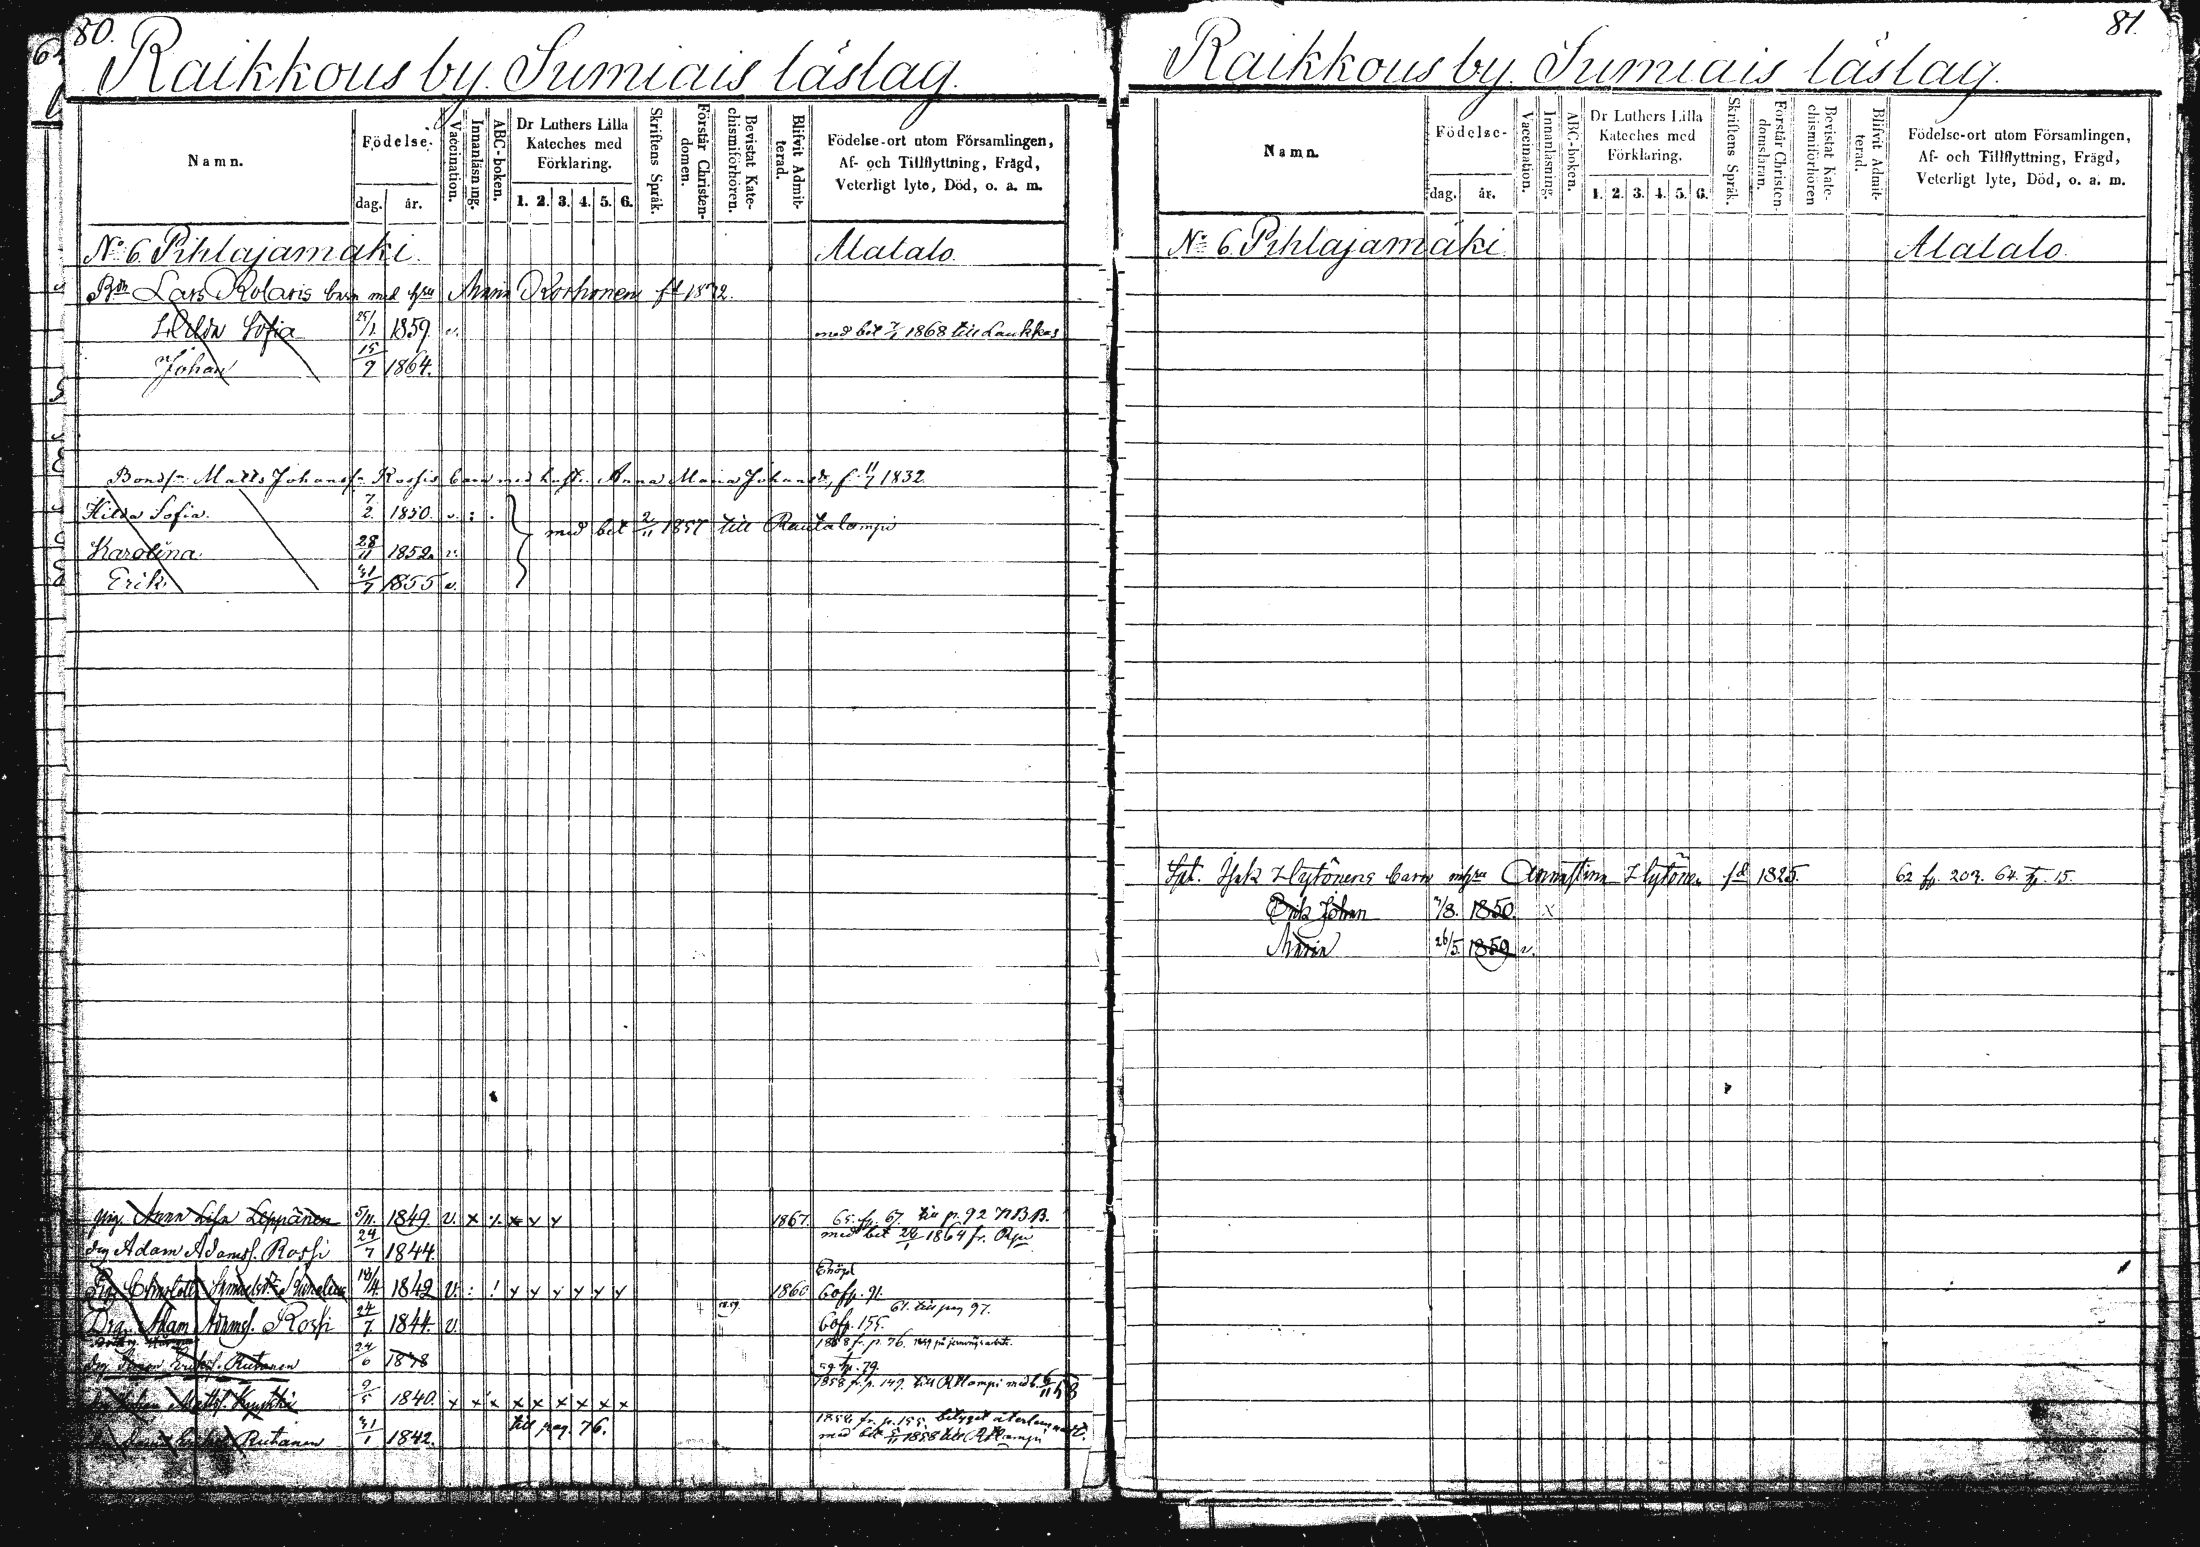 80.
Raikkous by. Sumiais läslag.
Namn.
Födelse-
dag. år.
Vaccination.
Innanläsning.
ABC-boken.
Dr Luthers Lilla
Kateches med
Förklaring.
1. 2. 3. 4. 5. 6.
Skriftens Språk.
Förstår Christen-
domen.
Bevistat Kate-
chismiförhören.
Blifvit Admit-
terad.
Födelse-ort utom Församlingen,
Af- och Tillflyttning, Frägd,
Veterligt lyte, Död, o. a. m.
No 6 Pihlajamäki. Alatalo.
Lars Kolaris barn med hru Anna Korhonen fd 1832.
Hilda Sofia 25/1 1859. v. med bet 1868 till Laukkas
Johan 15/9 1864.
Bonds. Matts Johanss. Rossis barn med hust. Anna Maria Johansdr, f. 11/7 1832
Hilda Sofia. 7/2 1850. v. : .
med bet 2/11 1857 till Rautalampi
Karolina 28/11 1852. v.
Erik. 31/7 1855 v.
pig. Anna Lisa Leppänen 5/11. 1849. v. x x x x x 1867. 65. fp. 67. till p. 92 NBB.
drg Adam Adamss. Rossi 24/7 1844. med bet 1864 fr.
1842 v. : ! x x x x x x 1860 60 fp. 91.
Drg. Adam Adamss. Rossi 24/7 1844. v. 60 fp. 155. 61. till pag 97.
1858 f. p. 76.
drg Simon Erikss. Ruhanen 24/6 1838 59 tp. 79.
drg Johan Matts. 9/5 1840. x x x x x x x x x 1858 fr. p. 149. till Rtlampi med b. 6/11 58
till pag. 76. 1858 fr. p. 155. betyget återlemnadt.
Erikss. Ruhanen 31/1 1842. med bet 5/11 1858 till Rtlampi
81.
Raikkous by. Sumiais läslag.
Namn.
Födelse-
dag. år.
Vaccination.
Innanläsning.
ABC-boken.
Dr Luthers Lilla
Kateches med
Förklaring.
1. 2. 3. 4. 5. 6.
Skriftens Språk.
Förstår Christen-
domsläran.
Bevistat Kate-
chismiförhören
Blifvit Admit-
terad.
Födelse-ort utom Församlingen,
Af- och Tillflyttning, Frägd,
Veterligt lyte, Död, o. a. m.
No 6 Pihlajamäki Alatalo.
Isak Hytönens barn m hru Annastina Hytönen fd 1825. 62 fp. 203. 64. tp. 15.
Erik Johan /8. 1850. x
Maria 26/5. 1859 v.